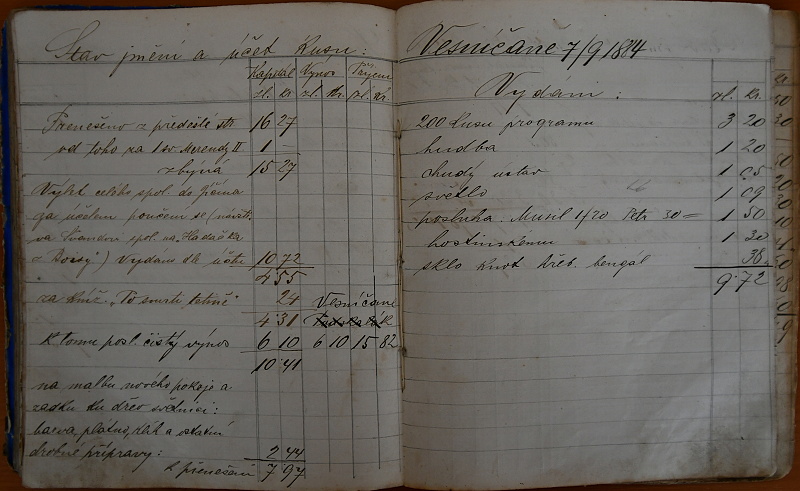 Stav jmění a účet Kusu:
Kapitál Výnos Příjem
zl. kr. zl. kr. zl. kr.
Přenešeno z předešlé str 16 27
od toho za 1 sv. Merendy II 1 —
zbývá 15 27
Výlet celého spol. do Jičína
za účelem poučení se (návště
va Švandov spol. na „
z ") Vydáno dle účtu 10 72
4 55
za kníž. „To smrti tetině" 24 Vesničané
4 31
K tomu posl. čistý výnos 6 10 6 10 15 82
10 41
na malbu nového pokoje a
zadku ku dřev světnici:
barva, plátno, klih a ostatní
drobné přípravy: 2 44
K přenešení 7 97
Vesničané 7/9 1884
Vydání:
zl. kr.
200 kusu programu 3 20
hudba 1 20
chudý ústav 1 05
světlo 1 09
posluha. Musil 1/20 Petr 30 = 1 50
hostinskému 1 30
sklo knot hřeb. bengál 38
9 72